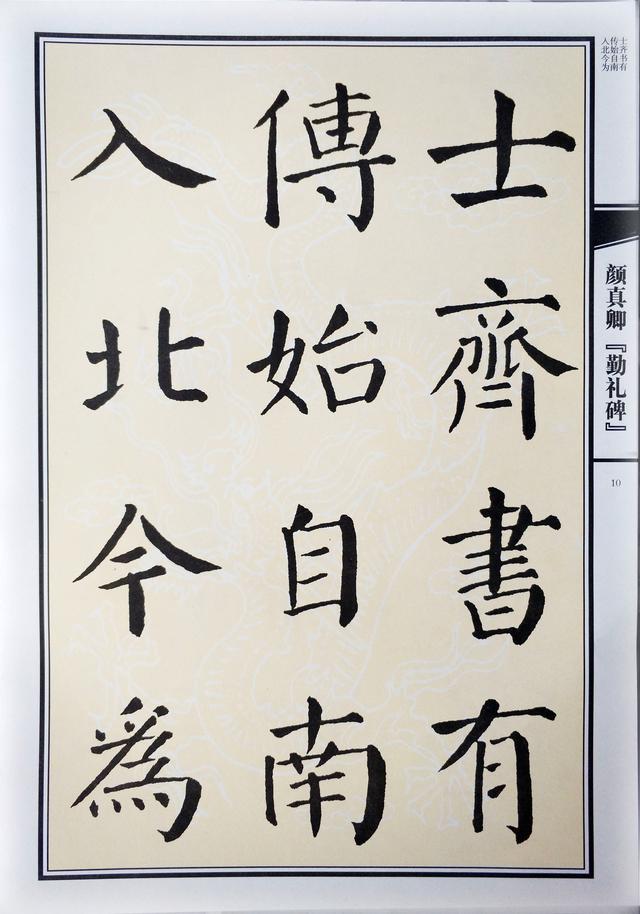 士齊書有
傳始自南
入北今為
士齐书有
传始自南
入北今为
颜真卿『勤礼碑』
10